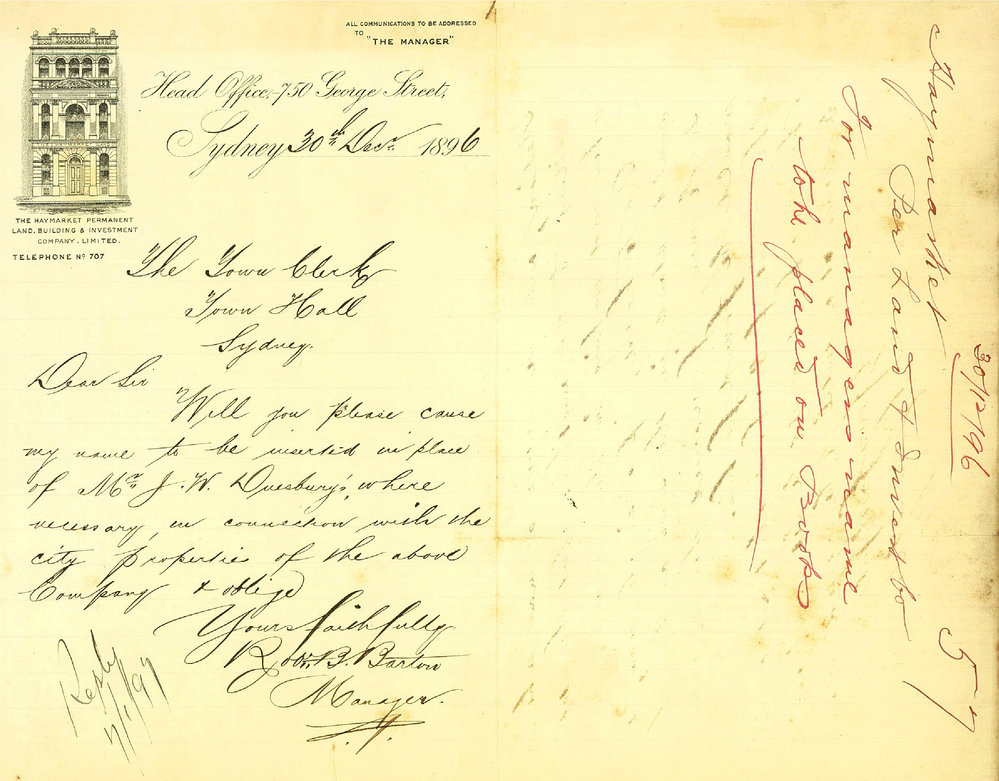 ALL COMMUNICATIONS TO BE ADDRESSED
TO "THE MANAGER"
Head Office, 750 George Street,
Sydney 30th Decr 1896
THE HAYMARKET PERMANENT
LAND, BUILDING & INVESTMENT
COMPANY, LIMITED.
TELEPHONE No 707
The Town Clerk
Town Hall
Sydney.
Dear Sir
Will you please cause
my name to be inserted in place
of Mr J. W. Duesbury's, where
necessary, in connection with the
city properties of the above
Company & oblige
Yours faithfully
Robt. B. Barton
Manager.
Reply
7/1/97
30/12/96
Haymarket
Per Land & Invest Co
For managers name
to be placed on Books